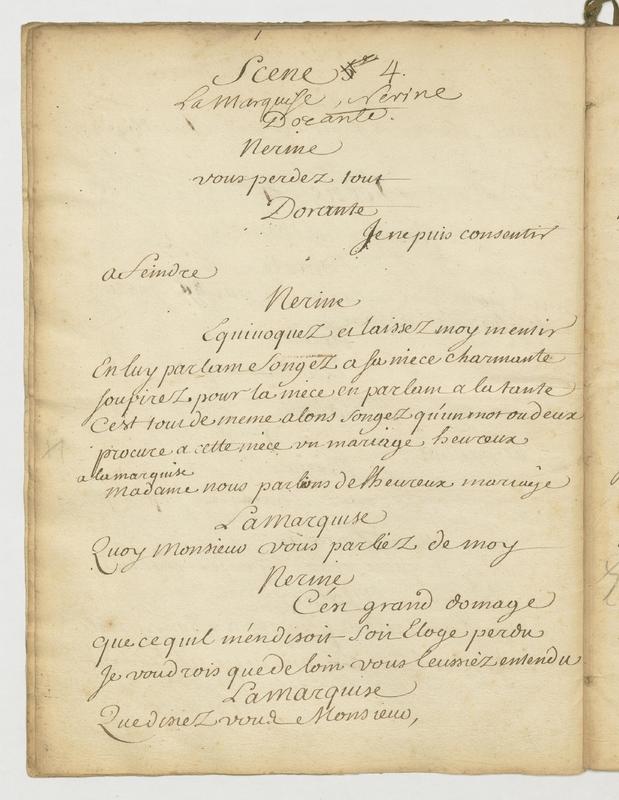 Scene 4.
La Marquise, Nerine
Dorante.
Nerine
vous perdez tout
Dorante
Je ne puis consentir
a feindre
Nerine
Equivoquez et laissez moy mentir
En luy parlant songez a sa niece charmante
soupirez pour la niece en parlant a la tante
C'est tout de meme alons songez qu'un mot ou deux
procure a cette niece un mariage heureux
a la marquise
Madame nous parlions de l'heureux mariage
La Marquise
Quoy Monsieur vous parliez de moy
Nerine
C'en grand domage
que ce quil m'en disoit soit Eloge perdu
Je voudrois que de loin vous leussiez entendu
La Marquise
Que disiez vous Monsieur,